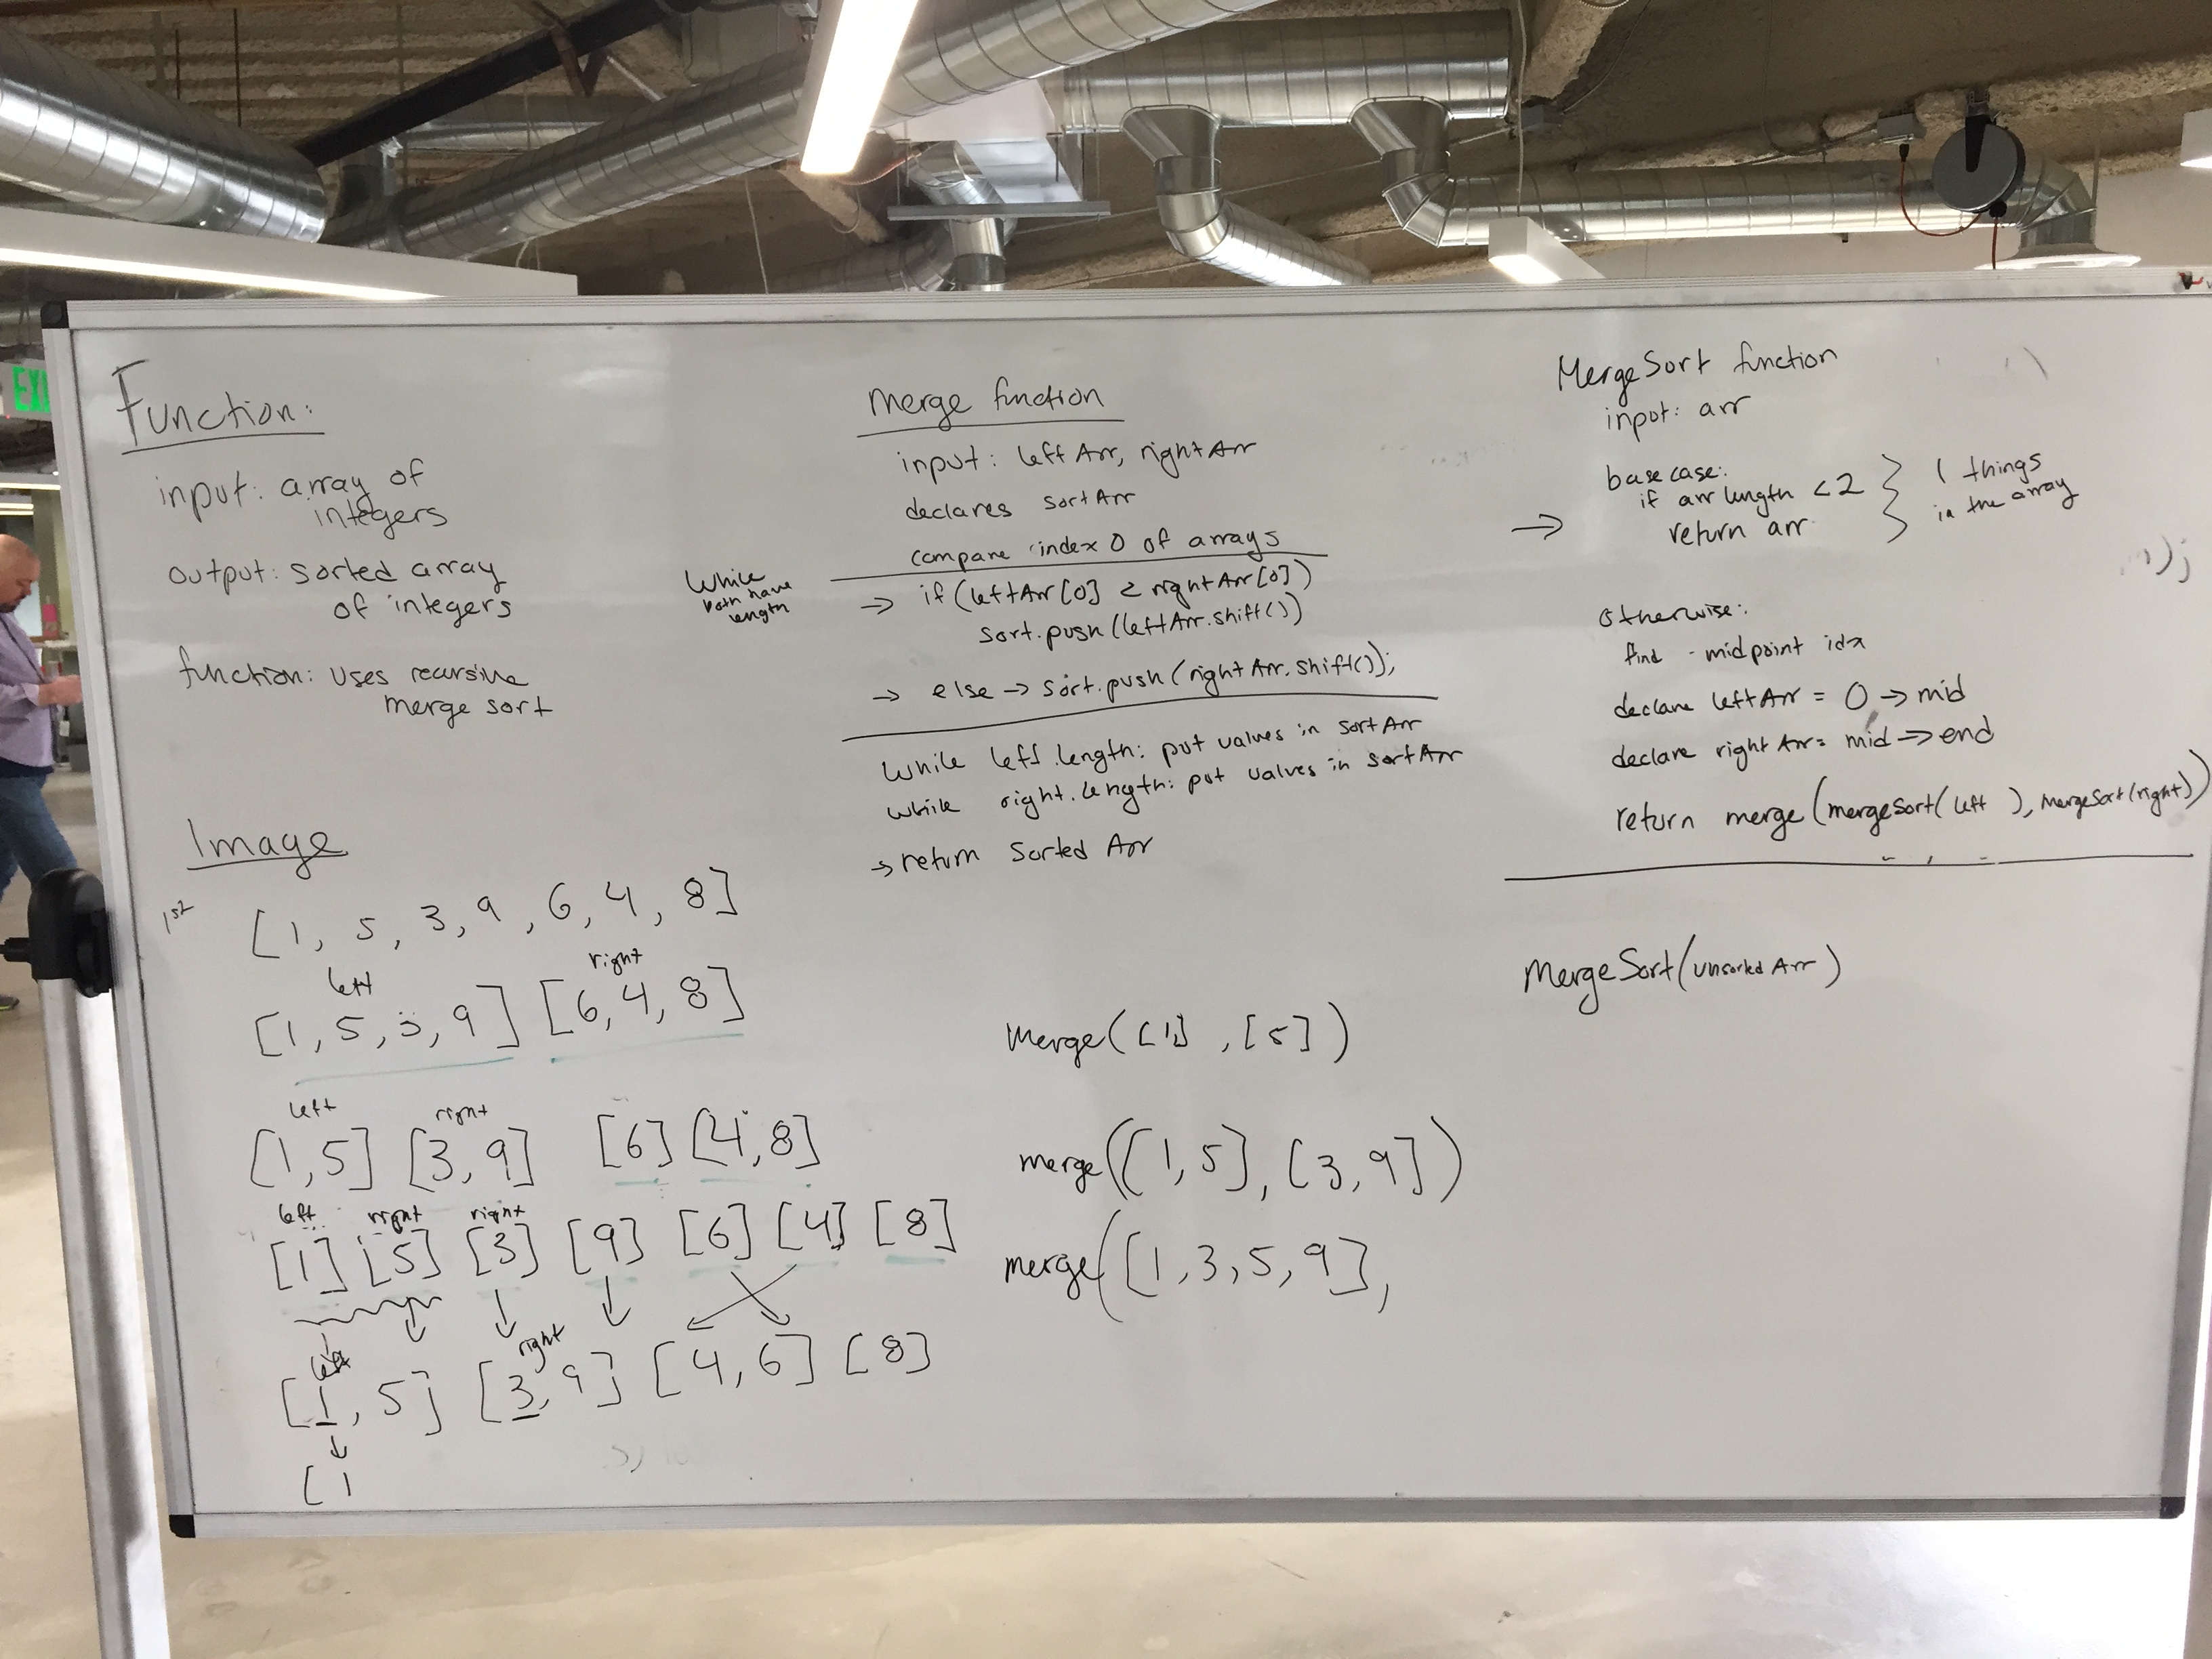 EXI
Function:
input: array of
integers
output: sorted array
of integers
function: uses recursive
merge sort
Image
1st
[1, 5, 3, 9, 6, 4, 8]
left right
[1, 5, 3, 9] [6, 4, 8]
left right
[1, 5] [3, 9] [6] [4, 8]
left right right
[1] [5] [3] [9] [6] [4] [8]
left right
[1, 5] [3, 9] [4, 6] [8]
[1
merge function
input: leftArr, rightArr
declares sortArr
compare index 0 of arrays
While
both have
length
→ if (leftArr[0] < rightArr[0])
sort.push(leftArr.shift())
→ else → sort.push(rightArr.shift());
while left.length: put values in sortArr
while right.length: put values in sortArr
→ return Sorted Arr
merge([1], [5])
merge([1, 5], [3, 9])
merge([1, 3, 5, 9],
MergeSort function
input: arr
base case:
if arr length < 2
→ return arr
1 things
in the array
otherwise:
find midpoint idx
declare leftArr = 0 → mid
declare rightArr = mid → end
return merge(mergeSort(left), mergeSort(right))
MergeSort(unsorted Arr)